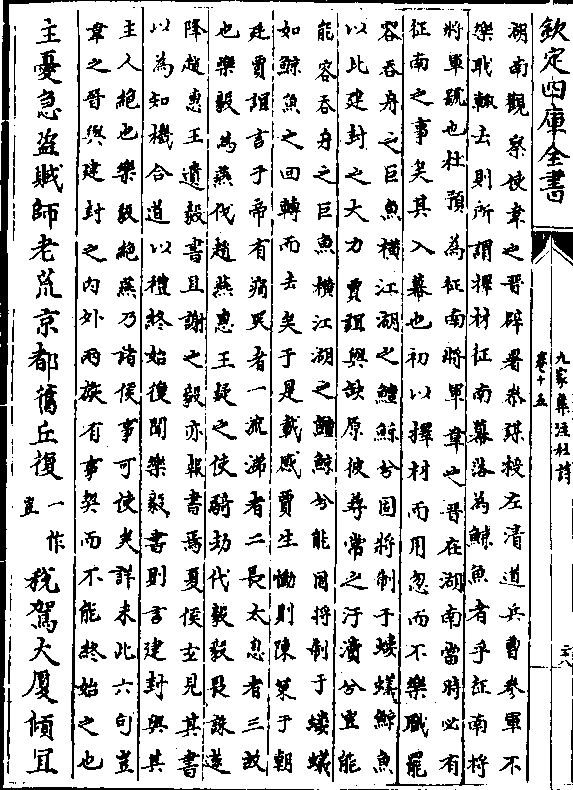 欽定四庫全書
九家集注杜詩
卷十五
湖南觀察使韋之晉辟署參謀授左清道兵曹參軍不
樂職輒去則所謂擇材征南幕落為鯨魚者乎征南將
將軍號也杜預為征南將軍韋之晉在湖南當時必有
征南之事矣其入幕也初以擇材而用忽而不樂職罷
容吞舟之巨魚橫江湖之鱣鯨兮固將制于螻蟻鯨魚
以比建封之大力賈誼興弔原彼尋常之汙瀆兮豈能
能容吞舟之巨魚橫江湖之鱣鯨兮能固將制于螻蟻
如鯨魚之回轉而去矣于是載感賈生慟則陳策于朝
廷賈誼言于帝有痛哭者一流涕者二長太息者三故
也樂毅為燕代趙燕惠王疑之使騎劫代毅毅畏誅遂
降趙惠王遺毅書且謝之毅亦報書焉夏侯玄見其書
以為知機合道以禮終始復閱樂毅書則言建封與其
主人絶也樂毅絶燕乃諸侯事可使夫詳未此六句豈
韋之晉與建封之内外兩族有事契而不能終始之也
主憂急盜賊師老荒京都舊丘復一作豈稅駕大厦傾宜